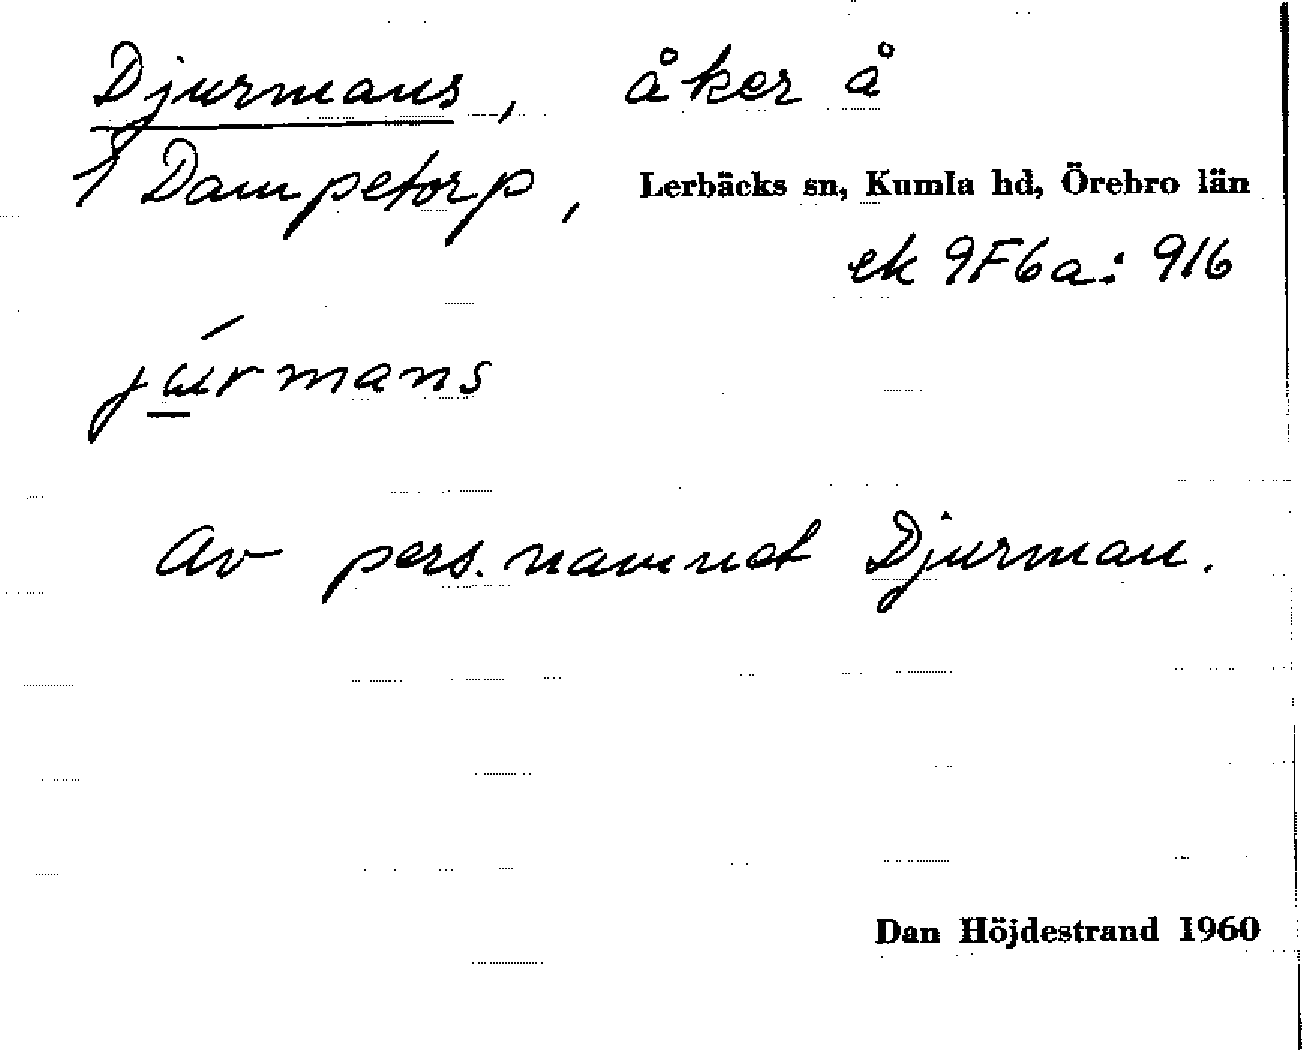 Djurmans, åker å
1 Dampetorp, Lerbäcks sn, Kumla hd, Örebro län
ek 9F6a: 916
júrmans
Av pers.namnet Djurman.
Dan Höjdestrand 1960